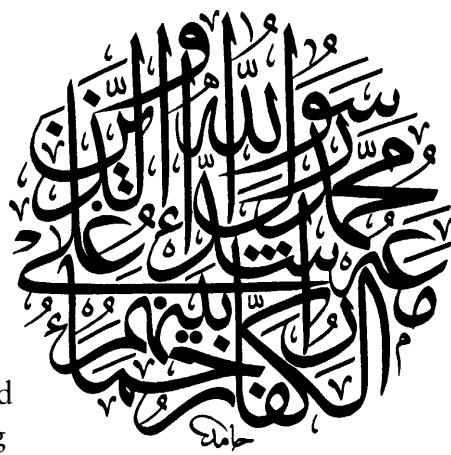 محمد رسول الله والذين معه أشداء على الكفار رحماء بينهم
حامد
d
g